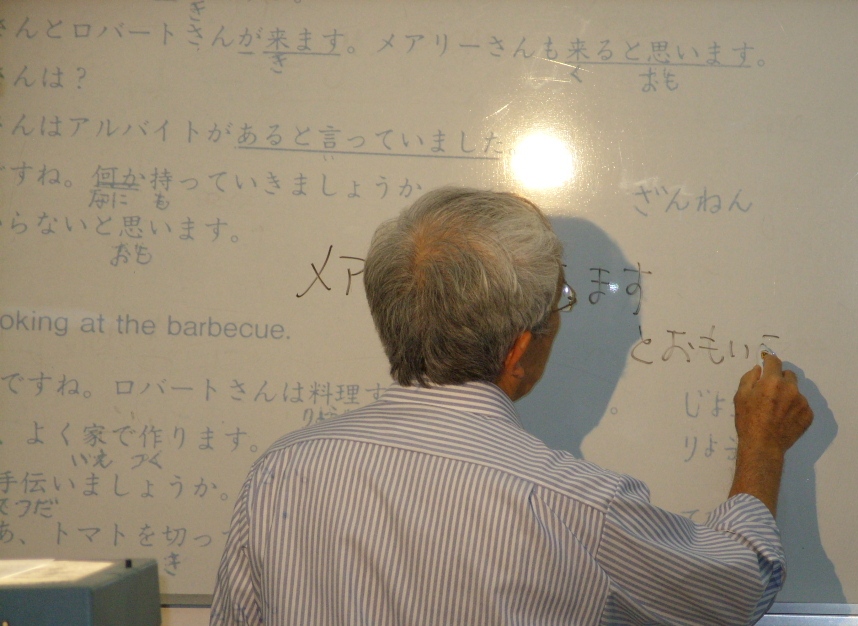 さんとロバートさんが来ます。メアリーさんも来ると思います。
き く おも
さんは?
んはアルバイトがあると言っていました
い
ですね。何か持っていきましょうか
なに も ざんねん
らないと思います。
おも
メア ます
とおもいま
oking at the barbecue.
ですね。ロバートさんは料理
じょ
りょう
、よく家で作ります。
いえ つく
手伝いましょうか。
てつだ
あ、トマトを切っ
き